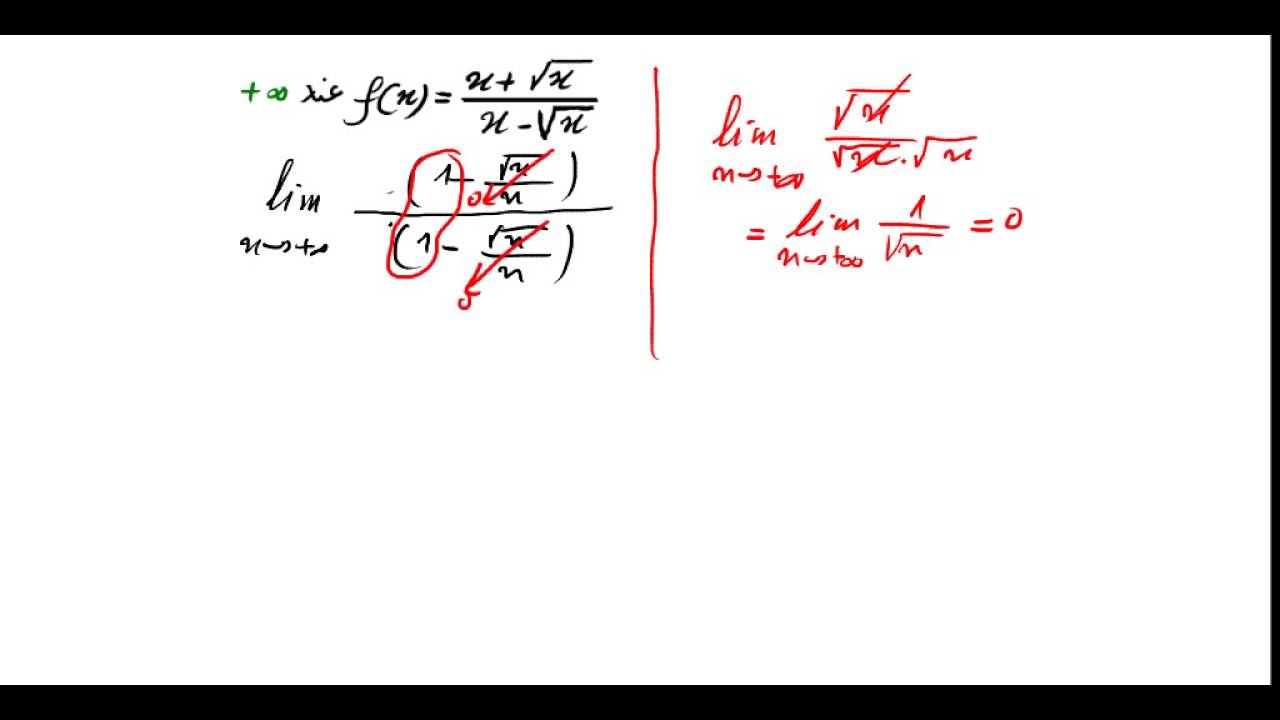 +∞ عند f(x) = (x + √x) / (x − √x)
lim x→+∞ (1 − √x/x) / (1 − √x/x)
0
0
lim x→+∞ √x / (√x · √x)
= lim x→+∞ 1/√x = 0